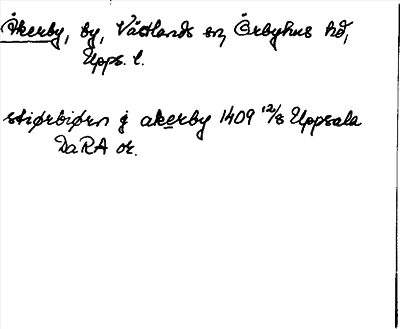 Åkerby, by, Västlands sn, Örbyhus hd,
Upps. l.
stiørbiørn j akerby 1409 12/8 Uppsala
DaRA or.